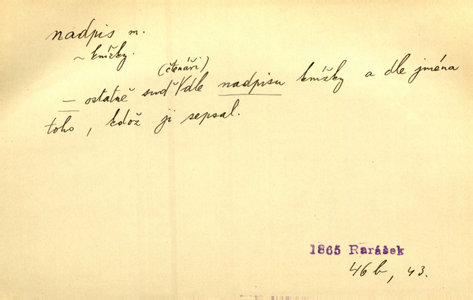 nadpis m.
~ knížky.
(čtenáři)
— ostatně suď dle nadpisu knížky a dle jména
toho, kdož ji sepsal.
1865 Rarášek
46b, 43.